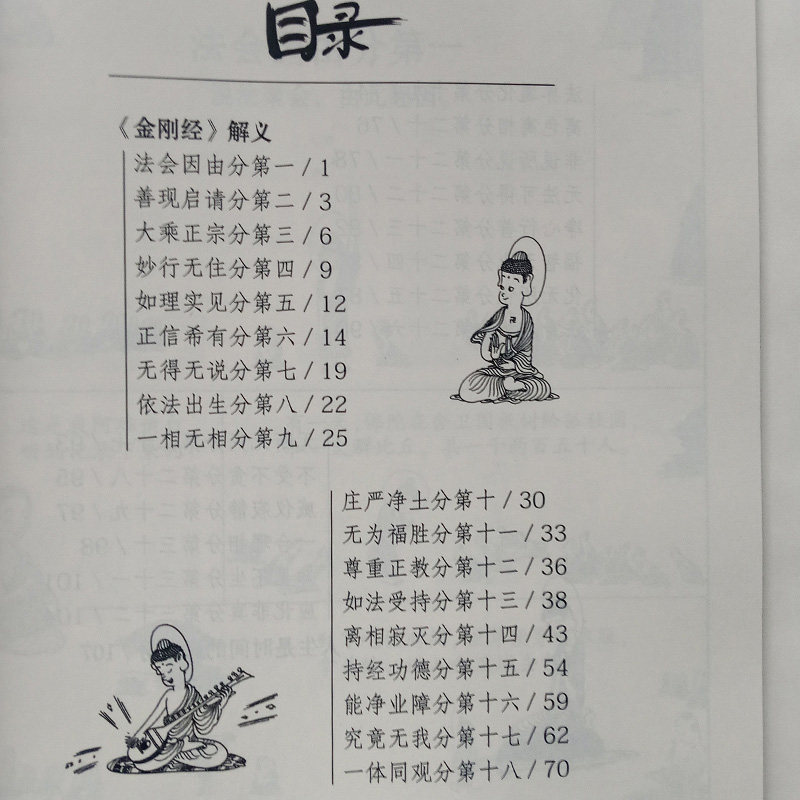 目录
《金刚经》解义
法会因由分第一/1
善现启请分第二/3
大乘正宗分第三/6
妙行无住分第四/9
如理实见分第五/12
正信希有分第六/14
无得无说分第七/19
依法出生分第八/22
一相无相分第九/25
庄严净土分第十/30
无为福胜分第十一/33
尊重正教分第十二/36
如法受持分第十三/38
离相寂灭分第十四/43
持经功德分第十五/54
能净业障分第十六/59
究竟无我分第十七/62
一体同观分第十八/70